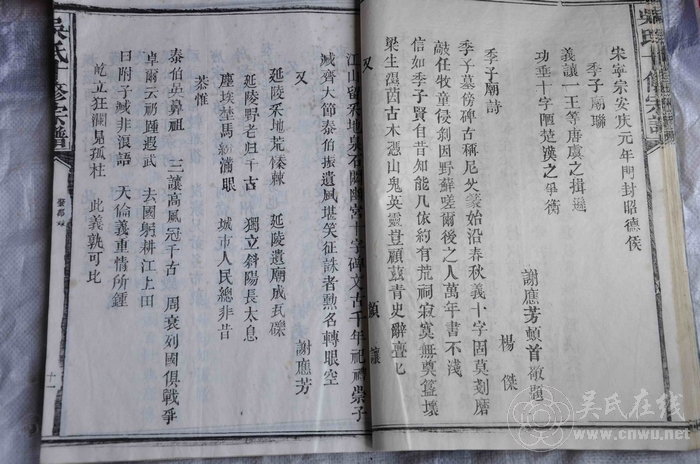 吳氏十修宗譜
宋寧宗安庆元年門封昭德侯
季子廟聯
義讓一王等唐虞之揖遜
功垂十字陋楚漢之爭衡
謝應芳頓首敬題
季子廟詩
楊傑
季子墓傍碑古稱尼父篆始沿春秋義十字固莫刻磨
敲任牧童侵剝因野蘚嗟爾後之人萬年書不淺
信如季子賢自昔知能几依約有荒祠寂寞無奠簋壞
梁生濕菌古木憑山鬼英靈豈顧茲青史辭亹亹
又
江山留采地泉石閟幽宮十字碑文古千年祀神崇子
臧齊大節泰伯振遺風堪笑征誅者勲名轉眼空
又
謝應芳
延陵采地荒榛棘
延陵遺廟成瓦礫
延陵野老归千古
獨立斜陽長太息
塵埃埜馬紛滿眼
城市人民總非昔
恭惟
泰伯吳鼻祖
三讓高風冠千古
周衰列國俱戰爭
卓爾云礽踵遐武
去國躬耕江上田
曰附子臧非浪語
天倫義重情所鍾
屹立狂瀾見孤柱
此義孰可比
吳氏十修宗譜
十一
吴氏在线
www.cnwu.net